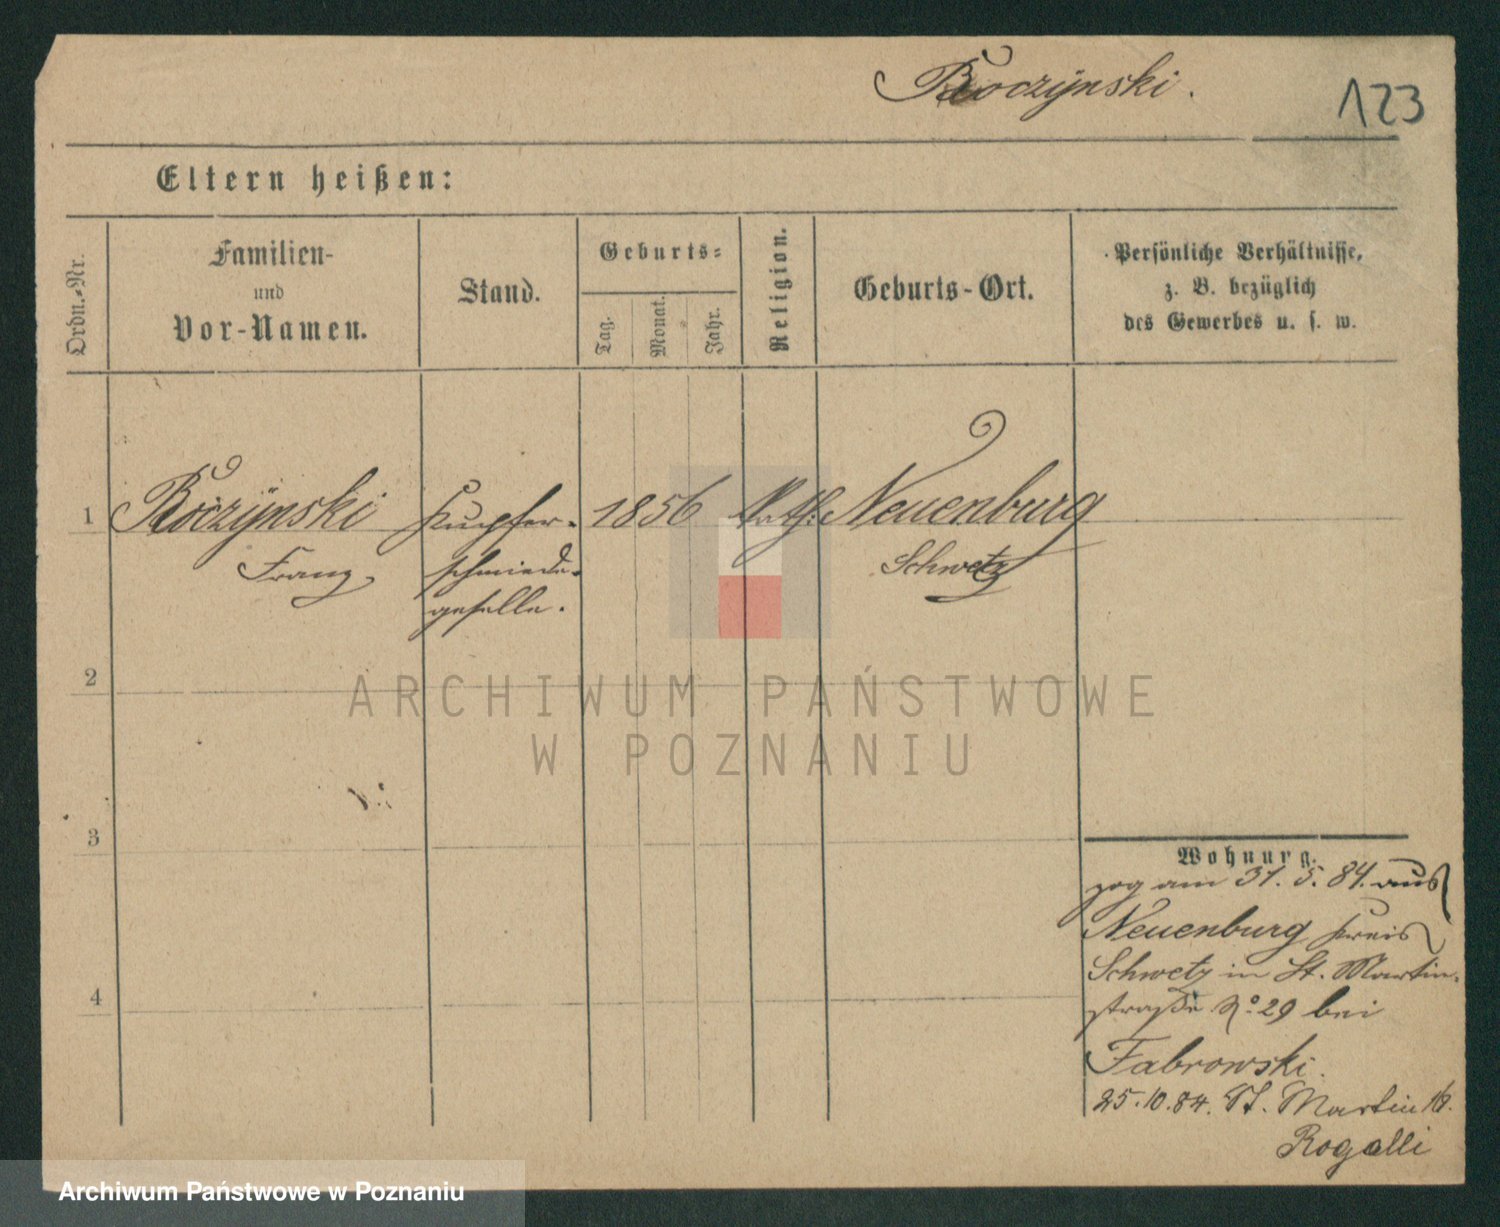 Roczÿnski.
123
Eltern heißen:
Ordn.-Nr.
Familien-
und
Vor-Namen.
Stand.
Geburts-
Tag.
Monat.
Jahr.
Religion.
Geburts-Ort.
Persönliche Verhältnisse,
z. B. bezüglich
des Gewerbes u. s. w.
1
Kupfer-
1856
Kath.
Neuenburg
Franz
schmiede-
Schwetz
geselle.
2
ARCHIWUM PAŃSTWOWE
W POZNANIU
3
Wohnung.
zog am 31. 5. 84. aus
Neuenburg Kreis
Schwetz in St. Martin-
straße No. 29 bei
Fabrowski.
4
25.10.84. St. Martin 16.
Rogalli
Archiwum Państwowe w Poznaniu